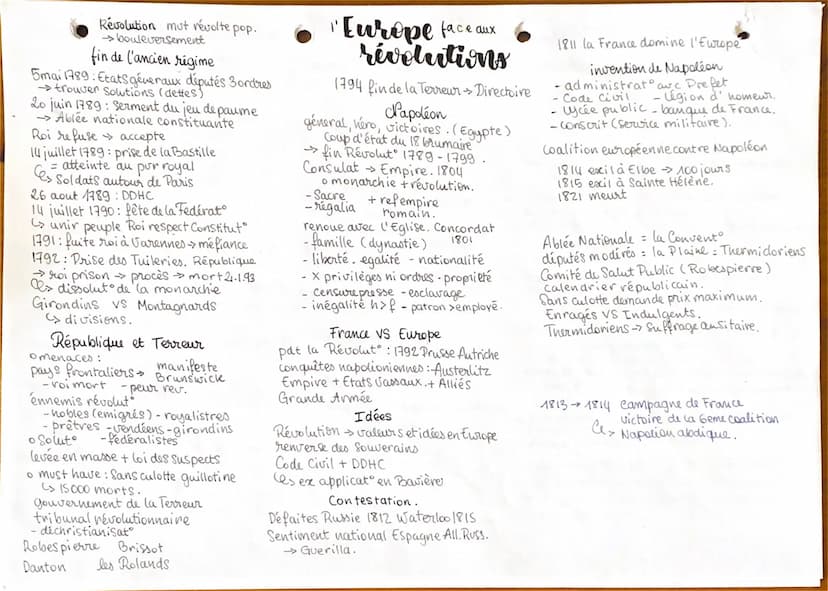 Révolution mvt révolte pop.
→ bouleversement
fin de l'ancien régime
5 mai 1789 : Etats généraux députés 3 ordres
→ trouver solutions (dettes)
20 juin 1789 : Serment du jeu de paume
→ Ablée nationale constituante
Roi refuse → accepte
14 juillet 1789 : prise de la Bastille
= atteinte au pvr royal
↳ Soldats autour de Paris
26 aout 1789 : DDHC
14 juillet 1790 : fête de la Fédérat°
↳ unir peuple Roi respect Constitut°
1791 : fuite roi à Varennes → méfiance
1792 : Prise des Tuileries. République
→ roi prison → procès → mort 21.1.93
↳ dissolut° de la monarchie
Girondins VS Montagnards
↳ divisions.
République et Terreur
o menaces :
pays frontaliers → manifeste Brunswick
- roi mort - peur rev.
énnemis révolut°
- nobles (emigrés) - royalistres
- prêtres - vendéens - girondins
- fédéralistes
o Solut°
levée en masse + loi des suspects
o must have : Sans culotte guillotine
↳ 15000 morts.
gouvernement de la Terreur
tribunal révolutionnaire
- déchristianisat°
Robespierre Brissot
Danton les Rolands
l'Europe face aux
révolutions
1794 fin de la Terreur → Directoire
Napoléon
général, héro, victoires. (Egypte)
coup d'état du 18 brumaire
→ fin Révolut° 1789 - 1799.
Consulat → Empire. 1804
o monarchie + révolution.
- Sacre
- régalia + ref empire romain.
renoue avec l'Eglise. Concordat 1801
- famille (dynastie)
- liberté. egalité - nationalité
- x privilèges ni ordres. propriété
- censure presse - esclavage
- inégalité h>f - patron > employé.
France VS Europe
pdt la Révolut° : 1792 Prusse Autriche
conquêtes napolioniennes : Austerlitz
Empire + Etats Vassaux. + Alliés
Grande Armée
Idées
Révolution → valeurs et idées en Europe
renverse des Souverains
Code Civil + DDHC
↳ ex applicat° en Bavière
Contestation.
Défaites Russie 1812 Waterloo 1815
Sentiment national Espagne All. Russ.
→ Guerilla.
1811 la France domine l'Europe
invention de Napoléon
- administrat° avc Prefet
- Code Civil - légion d'honneur.
- lycée public - banque de France.
- conscrit (service militaire).
Coalition européenne contre Napoléon
1814 exil à Elbe → 100 jours
1815 exil à Sainte Hélène.
1821 meurt
Ablée Nationale = la Convent°
députés modérés = la Plaine = Thermidoriens
Comité de Salut Public (Robespierre)
calendrier républicain.
Sans culotte demande prix maximum.
Enragés VS Indulgents.
Thermidoriens → Suffrage censitaire.
1813 → 1814 campagne de France
victoire de la 6eme coalition
↳ Napoléon abdique.